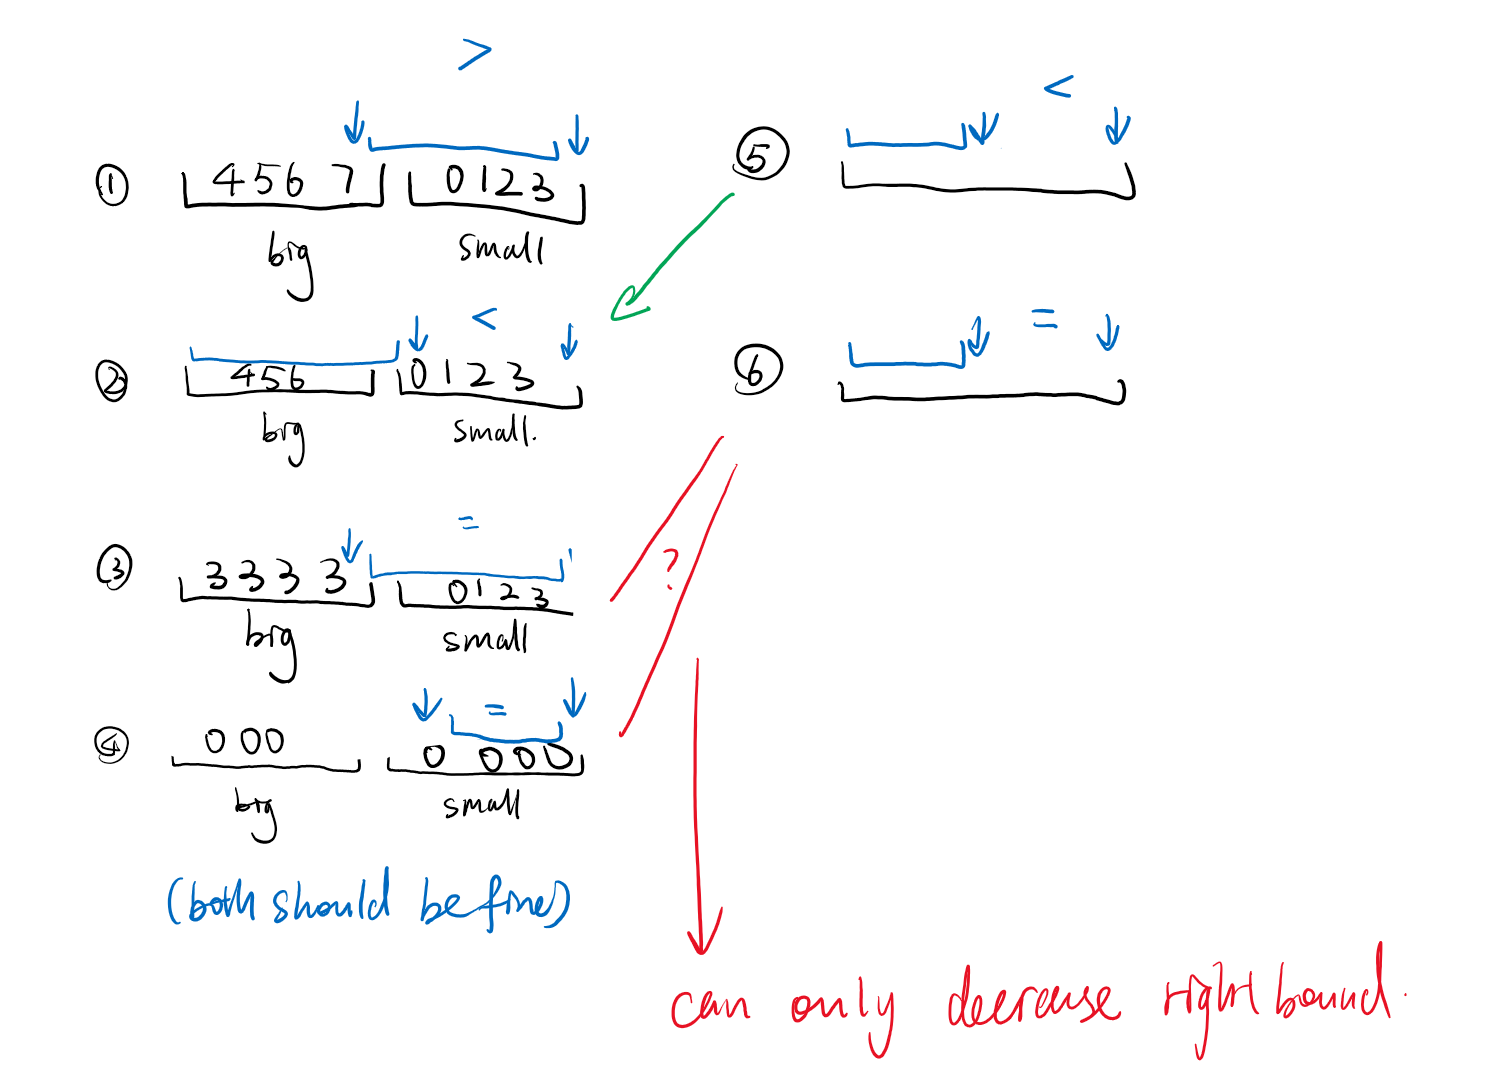 >
① 4 5 6 7 0 1 2 3
big small
<
② 4 5 6 0 1 2 3
big small.
=
③ 3 3 3 3 0 1 2 3
big small
=
④ 0 0 0 0 0 0 0
big small
(both should be fine)
<
⑤
=
⑥
?
can only decrease right bound.